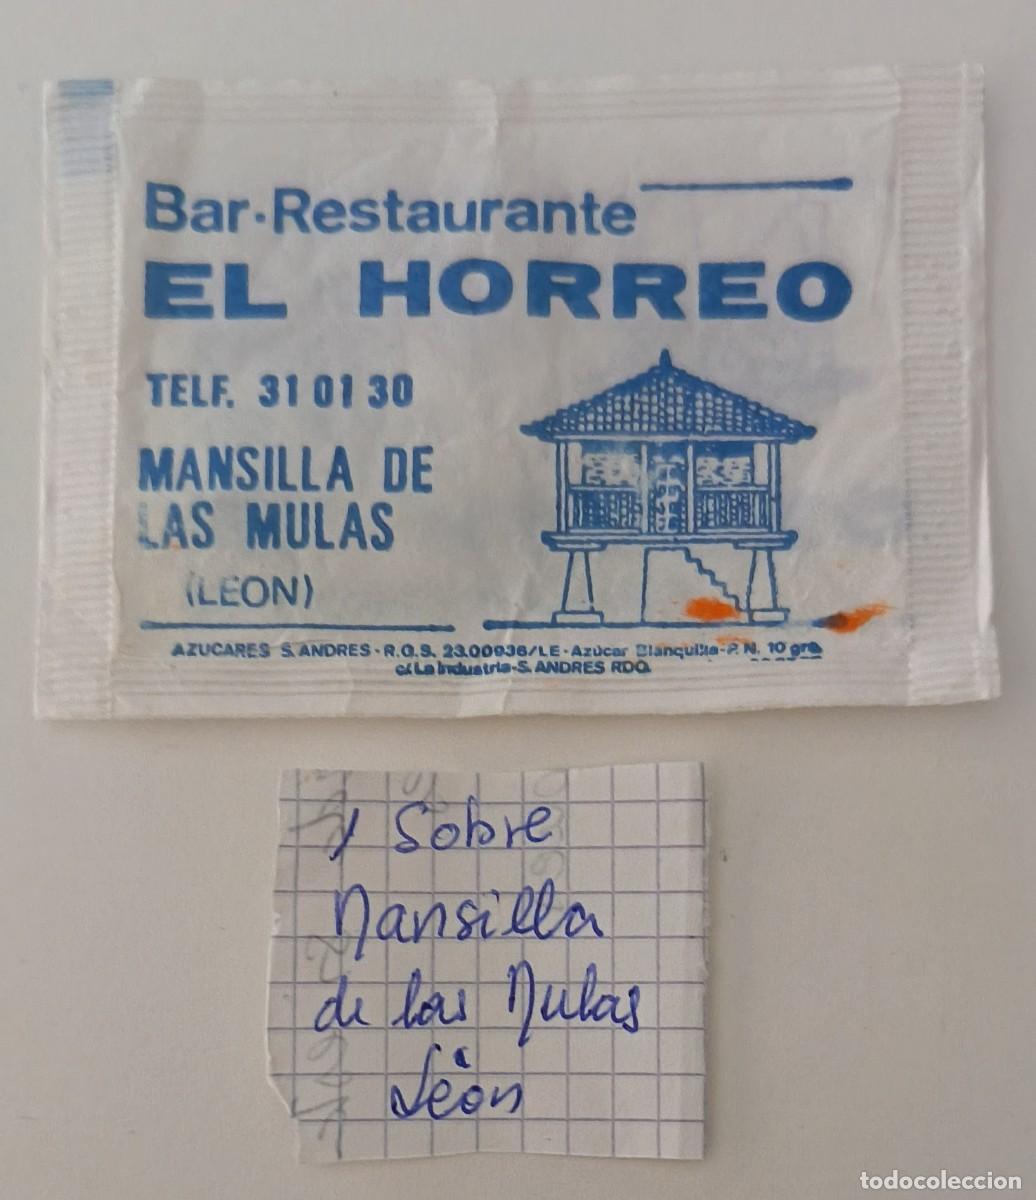 Bar-Restaurante
EL HORREO
TELF. 31 01 30
MANSILLA DE
LAS MULAS
(LEON)
AZUCARES S. ANDRES - R.G.S. 23.00936/LE - Azúcar Blanquilla - P. N. 10 grs
c/. La Industria - S. ANDRES RDO.
1 Sobre
Mansilla
de las Mulas
León
todocoleccion